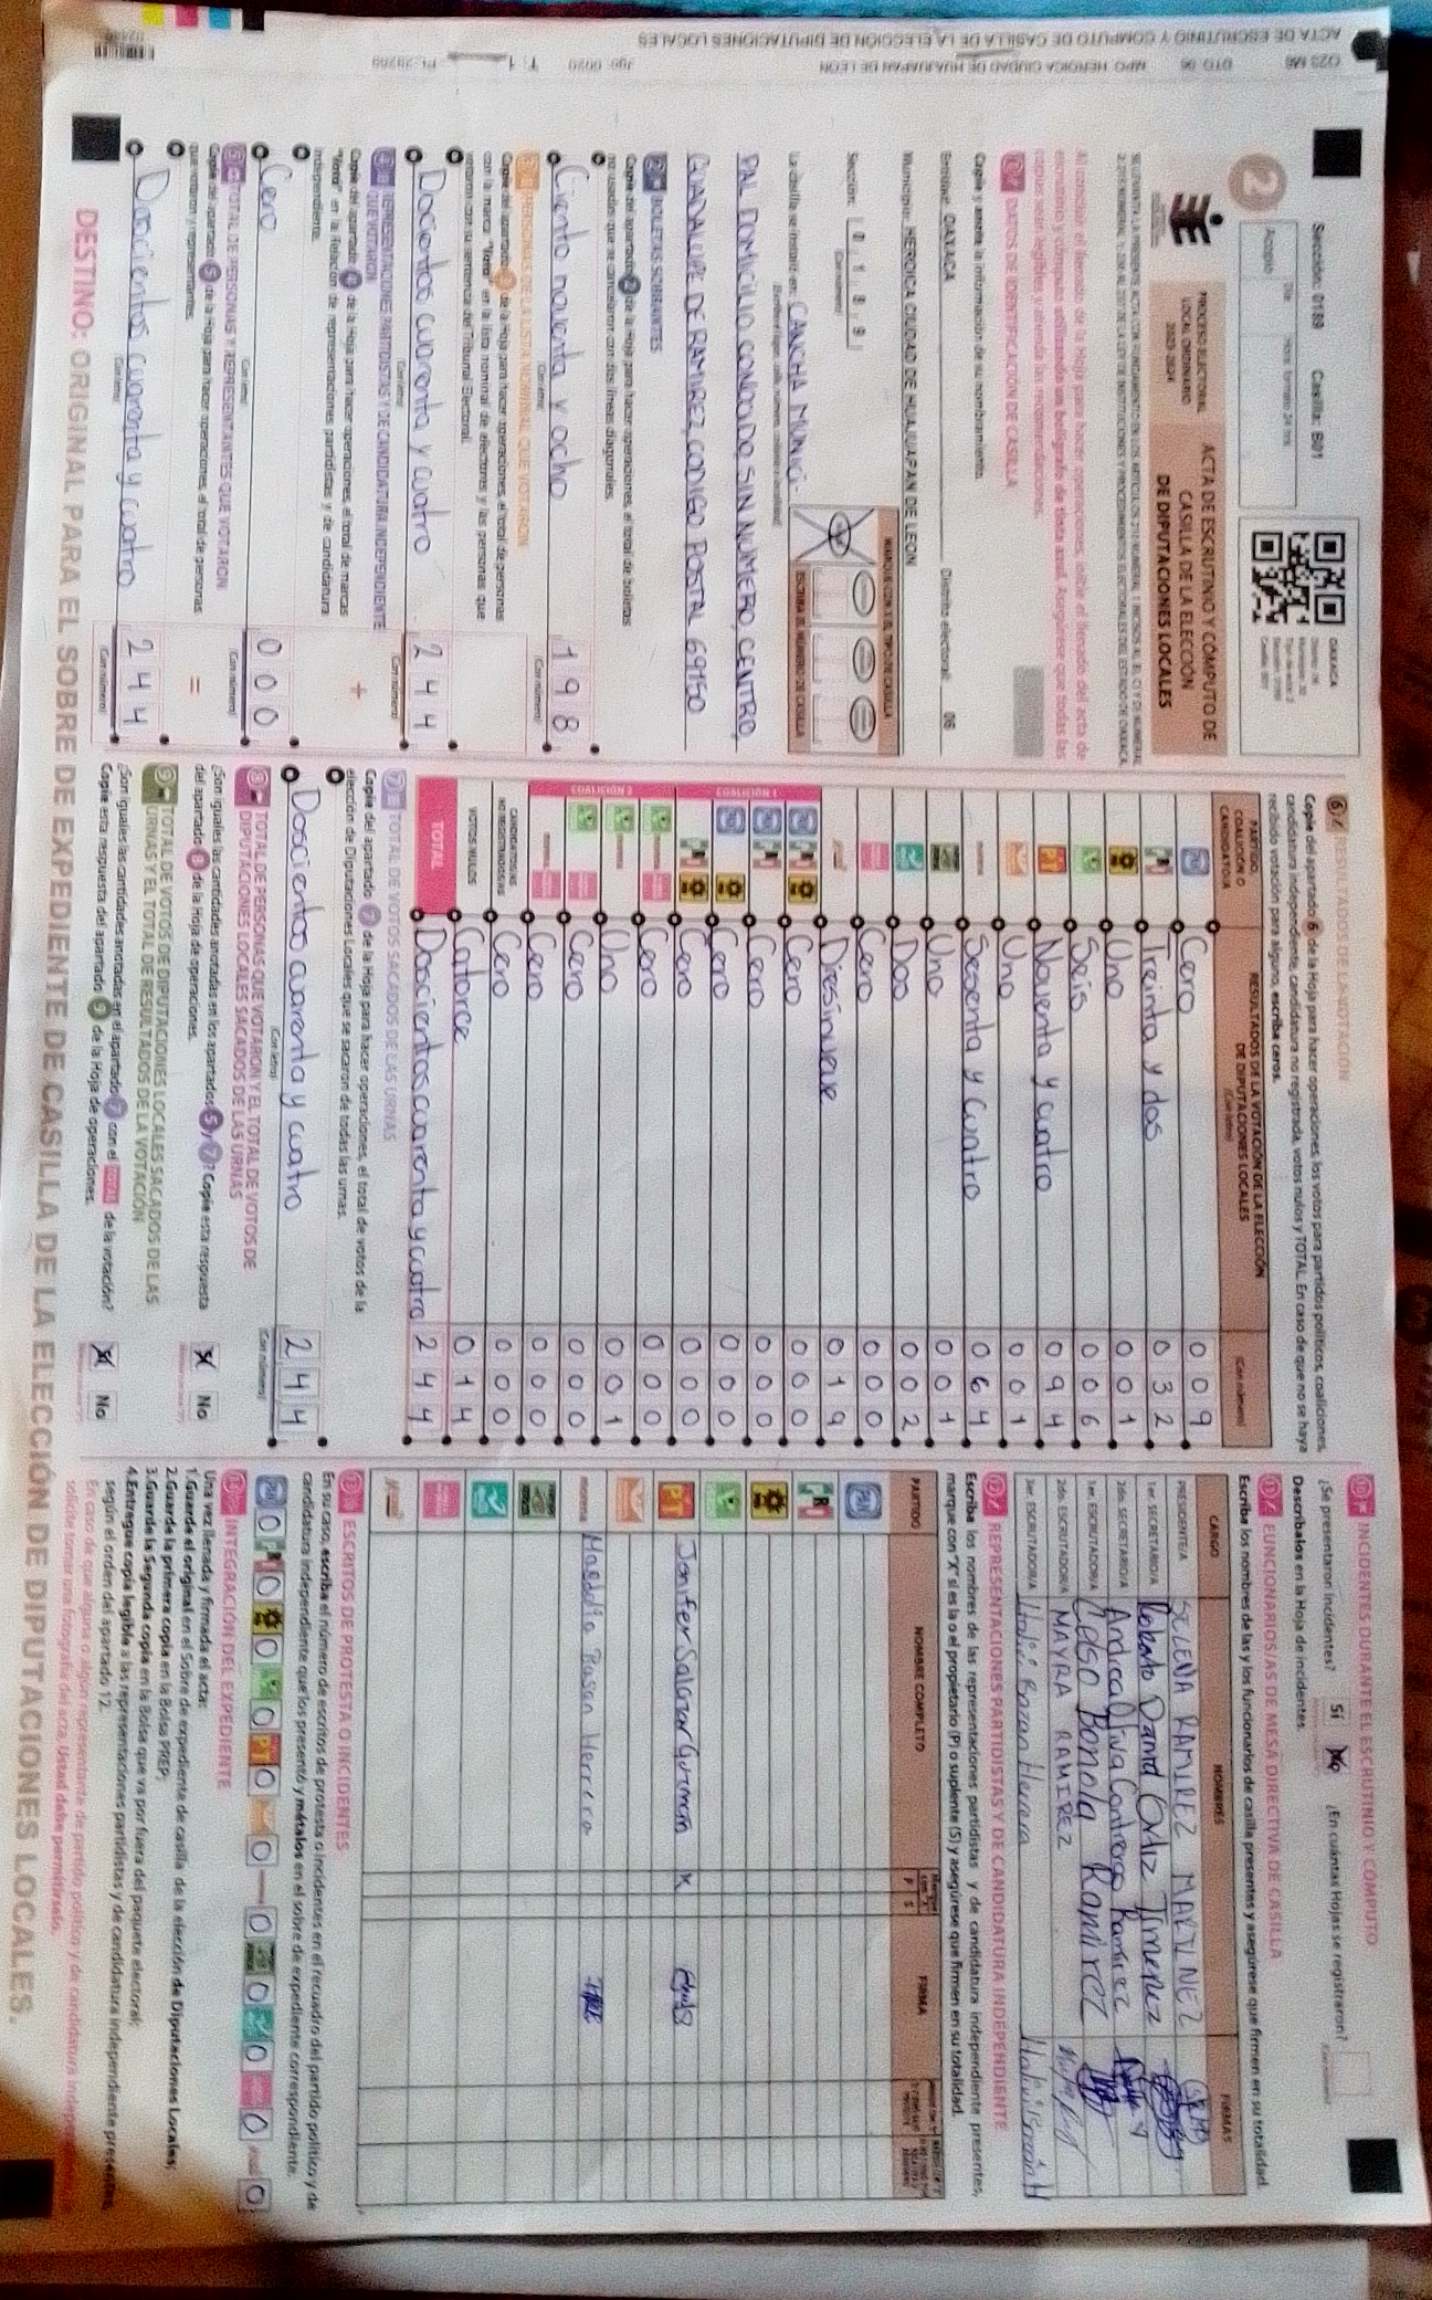 Sección: 0189 Casilla: B01
Acopio
OAXACA
2
PROCESO ELECTORAL
LOCAL ORDINARIO
2023-2024
ACTA DE ESCRUTINIO Y CÓMPUTO DE
CASILLA DE LA ELECCIÓN
DE DIPUTACIONES LOCALES
Al concluir el llenado de la Hoja para hacer operaciones, inicie el llenado del acta de
escrutinio y cómputo utilizando un bolígrafo de tinta azul. Asegúrese que todas las
copias sean legibles y atienda las recomendaciones.
1 DATOS DE IDENTIFICACIÓN DE CASILLA
Copie y anote la información de su nombramiento.
Entidad: OAXACA Distrito electoral: 06
Municipio: HEROICA CIUDAD DE HUAJUAPAN DE LEON
Sección: 0 1 8 9
(Con número)
MARQUE CON X EL TIPO DE CASILLA
ESCRIBA EL NÚMERO DE CASILLA
La casilla se instaló en: CANCHA MUNICI-
PAL DOMICILIO CONOCIDO, SIN NUMERO, CENTRO,
GUADALUPE DE RAMIREZ, CODIGO POSTAL 69150
2 BOLETAS SOBRANTES
Copie del apartado 2 de la Hoja para hacer operaciones, el total de boletas
no usadas que se cancelaron con dos líneas diagonales.
Ciento noventa y ocho 1 9 8
(Con letra) (Con número)
3 PERSONAS DE LA LISTA NOMINAL QUE VOTARON
Copie del apartado 3 de la Hoja para hacer operaciones, el total de personas
con la marca "Votó" en la lista nominal de electores y las personas que
votaron con su sentencia del Tribunal Electoral.
Doscientos cuarenta y cuatro 2 4 4
(Con letra) (Con número)
4 REPRESENTACIONES PARTIDISTAS Y DE CANDIDATURA INDEPENDIENTE
QUE VOTARON
Copie del apartado 4 de la Hoja para hacer operaciones, el total de marcas
"Votó" en la Relación de representaciones partidistas y de candidatura
independiente.
+
Cero 0 0 0
(Con letra) (Con número)
5 TOTAL DE PERSONAS Y REPRESENTANTES QUE VOTARON
Copie del apartado 5 de la Hoja para hacer operaciones, el total de personas
que votaron y representantes.
=
Doscientos cuarenta y cuatro 2 4 4
(Con letra) (Con número)
6 RESULTADOS DE LA VOTACIÓN
Copie del apartado 6 de la Hoja para hacer operaciones, los votos para partidos políticos, coaliciones,
candidatura independiente, candidatura no registrada, votos nulos y TOTAL. En caso de que no se haya
recibido votación para alguno, escriba ceros.
PARTIDO, COALICIÓN O CANDIDATO/A
RESULTADOS DE LA VOTACIÓN DE LA ELECCIÓN
DE DIPUTACIONES LOCALES
(Con letra) (Con número)
PAN Cero 0 0 9
PRI Treinta y dos 0 3 2
Uno 0 0 1
Seis 0 0 6
PT Noventa y cuatro 0 9 4
Uno 0 0 1
morena Sesenta y cuatro 0 6 4
Uno 0 0 1
Dos 0 0 2
Cero 0 0 0
Diesinueve 0 1 9
COALICIÓN 1
Cero 0 0 0
Cero 0 0 0
Cero 0 0 0
Cero 0 0 0
COALICIÓN 2
Cero 0 0 0
Uno 0 0 1
Cero 0 0 0
Cero 0 0 0
CANDIDATOS/AS NO REGISTRADOS/AS Cero 0 0 0
VOTOS NULOS Catorce 0 1 4
TOTAL Doscientos cuarenta y cuatro 2 4 4
7 TOTAL DE VOTOS SACADOS DE LAS URNAS
Copie del apartado 7 de la Hoja para hacer operaciones, el total de votos de la
elección de Diputaciones Locales que se sacaron de todas las urnas.
Doscientos cuarenta y cuatro 2 4 4
(Con letra) (Con número)
8 TOTAL DE PERSONAS QUE VOTARON Y EL TOTAL DE VOTOS DE
DIPUTACIONES LOCALES SACADOS DE LAS URNAS
¿Son iguales las cantidades anotadas en los apartados 5 y 7? Copie esta respuesta
del apartado 8 de la Hoja de operaciones.
No
9 TOTAL DE VOTOS DE DIPUTACIONES LOCALES SACADOS DE LAS
URNAS Y EL TOTAL DE RESULTADOS DE LA VOTACIÓN
¿Son iguales las cantidades anotadas en el apartado 7 con el TOTAL de la votación?
Copie esta respuesta del apartado 9 de la Hoja de operaciones.
No
10 INCIDENTES DURANTE EL ESCRUTINIO Y CÓMPUTO
¿Se presentaron incidentes? Sí No ¿En cuántas Hojas se registraron?
Descríbalos en la Hoja de incidentes.
11 FUNCIONARIOS/AS DE MESA DIRECTIVA DE CASILLA
Escriba los nombres de las y los funcionarios de casilla presentes y asegúrese que firmen en su totalidad.
CARGO NOMBRES FIRMAS
PRESIDENTE/A SELENA RAMIREZ MARTINEZ
1er. SECRETARIO/A Roberto Daniel Ortiz Jimenez
2do. SECRETARIO/A Contreras Ramirez
1er. ESCRUTADOR/A Celso Bonola Ramirez
2do. ESCRUTADOR/A MAYRA RAMIREZ
3er. ESCRUTADOR/A Bazan Herrera
12 REPRESENTACIONES PARTIDISTAS Y DE CANDIDATURA INDEPENDIENTE
Escriba los nombres de las representaciones partidistas y de candidatura independiente presentes,
marque con "X" si es la o el propietario (P) o suplente (S) y asegúrese que firmen en su totalidad.
PARTIDO NOMBRE COMPLETO P S FIRMA
PAN
PRI
PT Jenifer Salazar Guzman X
morena Bazan Herrera
13 ESCRITOS DE PROTESTA O INCIDENTES
En su caso, escriba el número de escritos de protesta o incidentes en el recuadro del partido político y de
candidatura independiente que los presentó y métalos en el sobre de expediente correspondiente.
14 INTEGRACIÓN DEL EXPEDIENTE
Una vez llenada y firmada el acta:
1.Guarde el original en el Sobre de expediente de casilla de la elección de Diputaciones Locales;
2.Guarde la primera copia en la Bolsa PREP;
3.Guarde la Segunda copia en la Bolsa que va por fuera del paquete electoral;
4.Entregue copia legible a las representaciones partidistas y de candidatura independiente presentes,
según el orden del apartado 12.
En caso de que alguna o algún representante de partido político y de candidatura independiente
solicite tomar una fotografía del acta, Usted debe permitírselo.
DESTINO: ORIGINAL PARA EL SOBRE DE EXPEDIENTE DE CASILLA DE LA ELECCIÓN DE DIPUTACIONES LOCALES.
DTO 06 MPO HEROICA CIUDAD DE HUAJUAPAN DE LEON
ACTA DE ESCRUTINIO Y COMPUTO DE CASILLA DE LA ELECCION DE DIPUTACIONES LOCALES